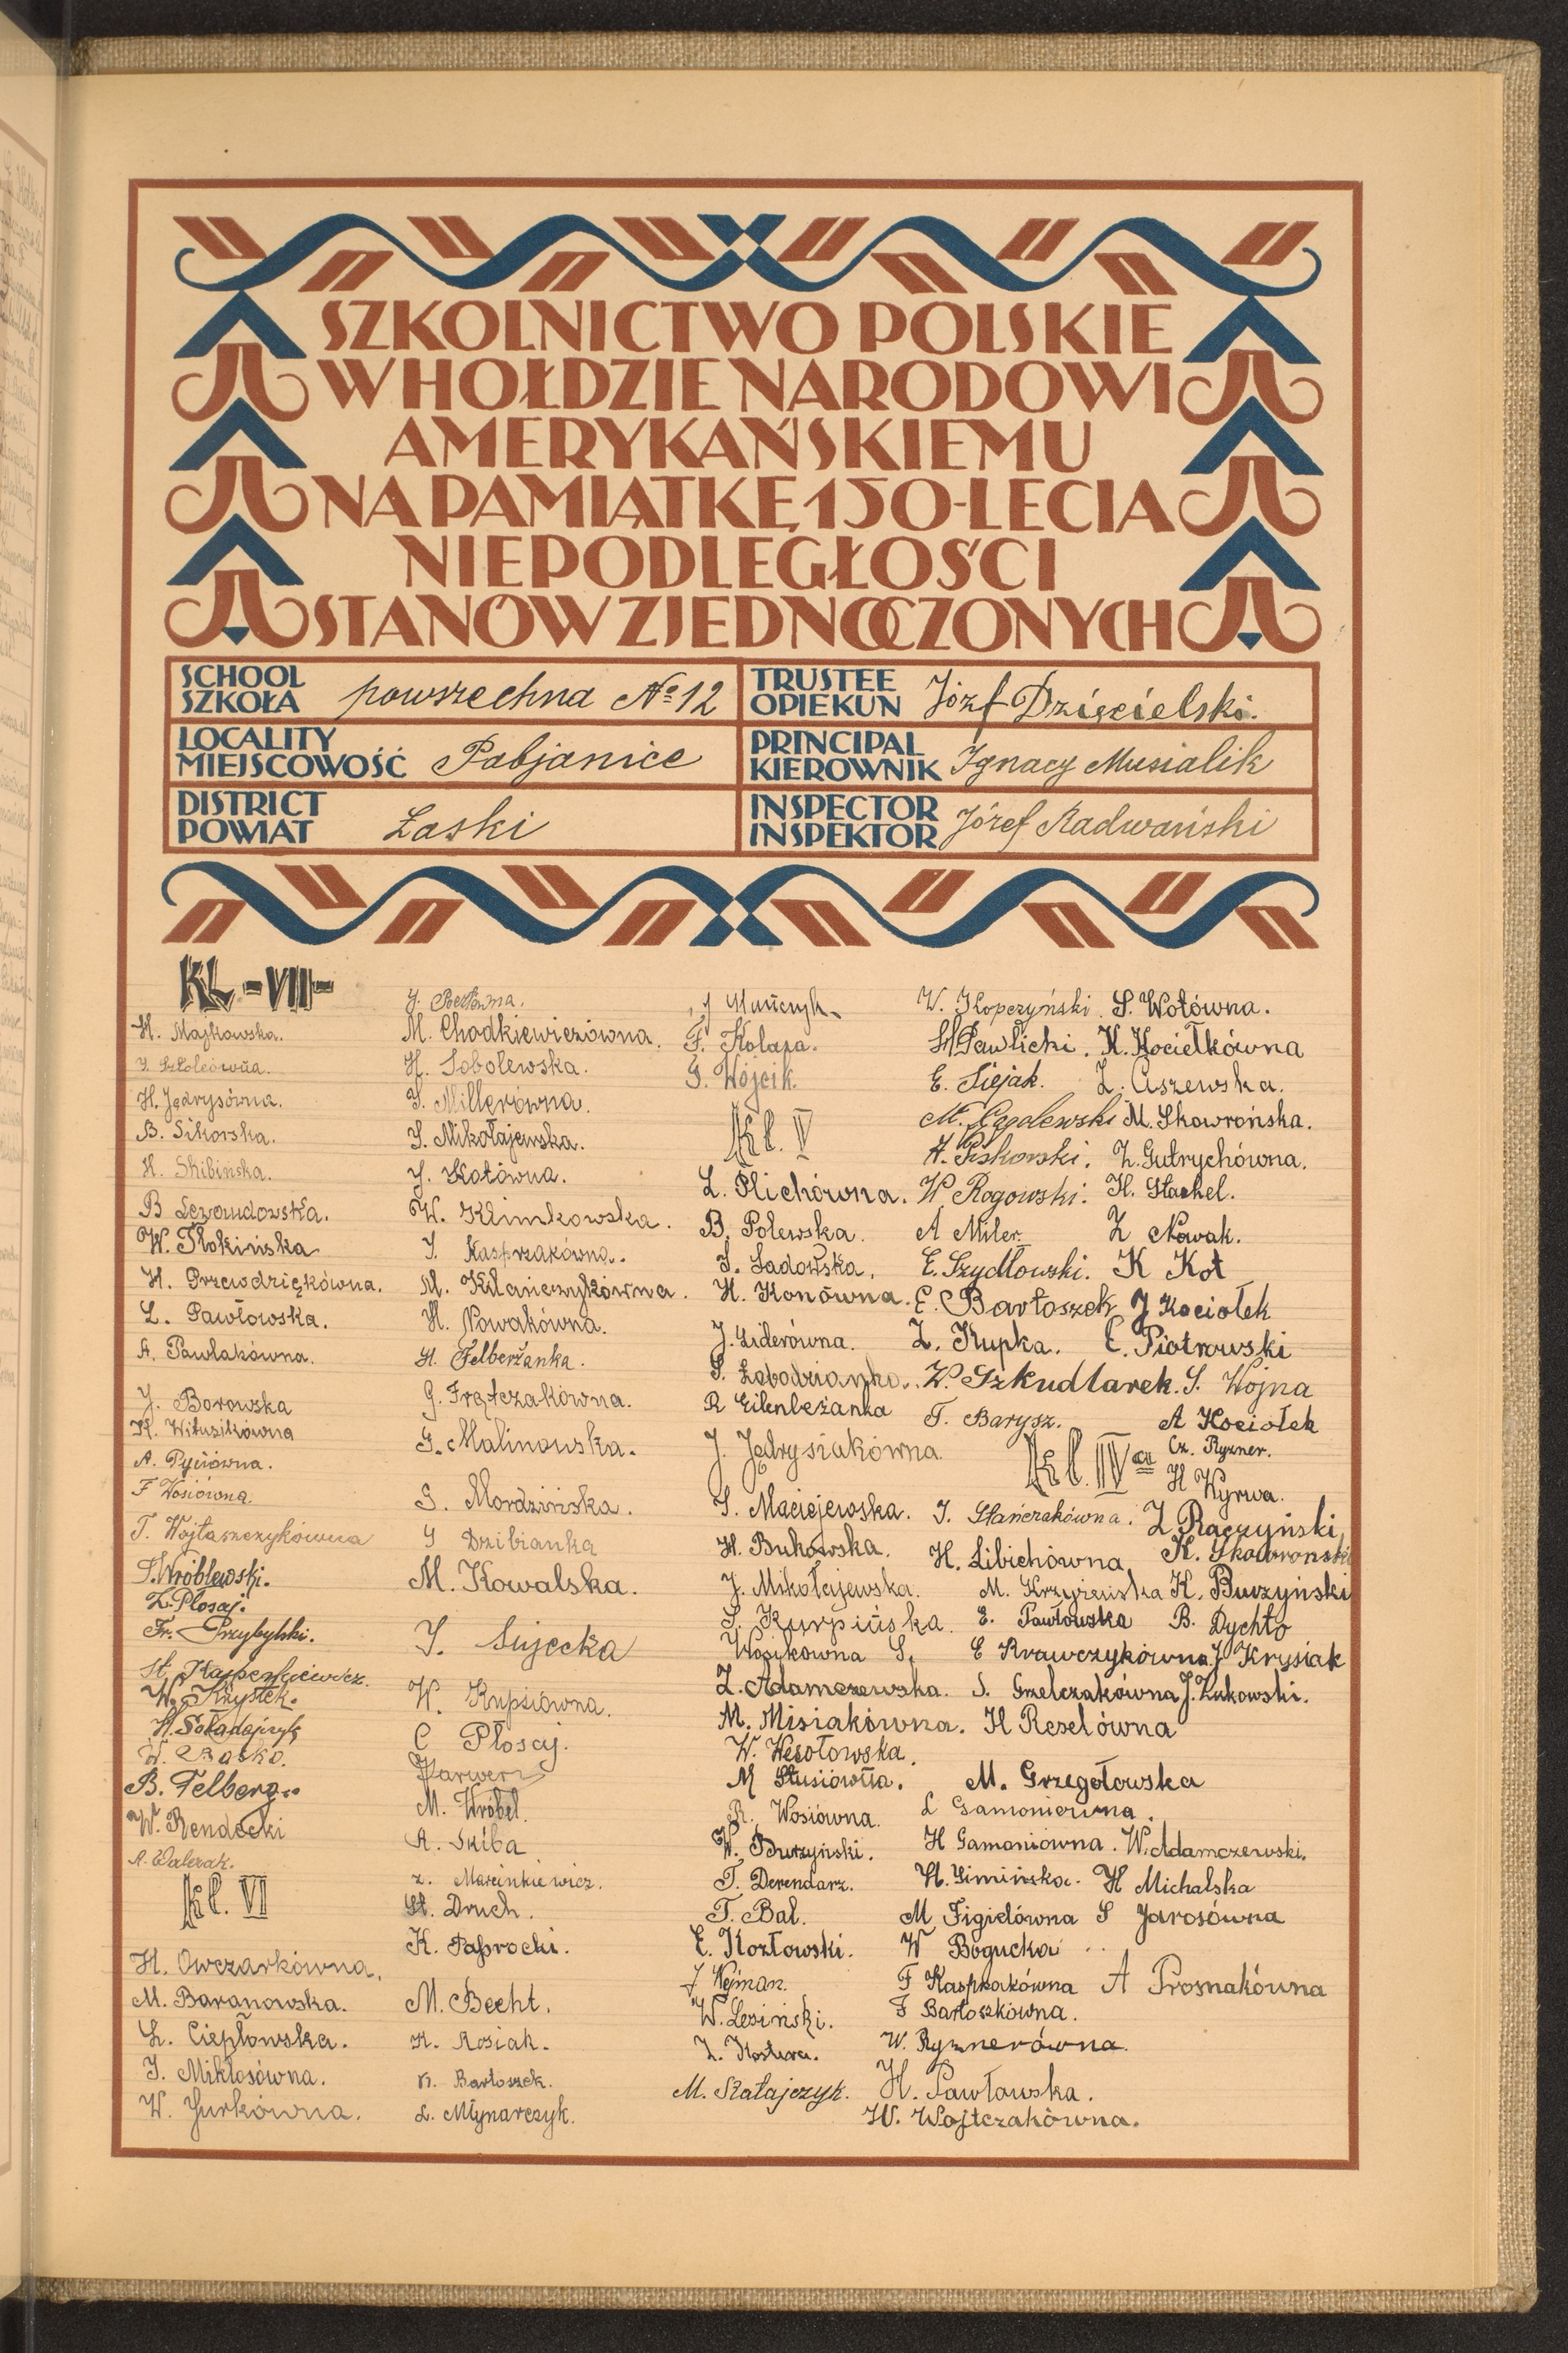 SZKOLNICTWO POLSKIE
W HOŁDZIE NARODOWI
AMERYKAŃSKIEMU
NA PAMIĄTKĘ 150-LECIA
NIEPODLEGŁOŚCI
STANÓW ZJEDNOCZONYCH
SCHOOL
SZKOŁA powszechna № 12
TRUSTEE
OPIEKUN Józef Dzięcielski.
LOCALITY
MIEJSCOWOŚĆ Pabjanice
PRINCIPAL
KIEROWNIK Ignacy Musialik
DISTRICT
POWIAT Łaski
INSPECTOR
INSPEKTOR Józef Radwański
KL.-VII-
H. Majkowska.
H. Jędrysówna.
B. Sikorska.
H. Skibińska.
B Lewandowska.
W. Tłokińska
H. Przewdziękówna.
L. Pawłowska.
A. Pawlakówna.
J. Borowska
K. Witusikówna
A. Pyciówna.
F Wosiówna.
T. Wojtaszczykówna
S. Wróblewski.
Z. Płosaj.
Fr. Przybylski.
St. Kasperkiewicz.
W. Krysiek.
H. Saładajczyk
W. Basko.
B. Felberg.
W. Rendecki
A. Walczak.
Kl. VI
H. Owczarkówna.
M. Baranowska.
L. Ciepłowska.
J. Mikłosówna.
W. Jurkówna.
M. Chodkiewiczówna.
H. Sobolewska.
S. Millerówna.
S. Mikołajewska.
J. Kotówna.
W. Klimkowska.
J. Kasprzakówna.
M. Kilańczykówna.
H. Nowakówna.
H. Felberżanka.
G. Frętczakówna.
G. Malinowska.
S. Mordzińska.
Y Dzibianka
M. Kowalska.
S. Sujecka
W. Kupsiówna.
C Płosaj.
M. Wróbel.
A. Skiba
Z. Marcinkiewicz.
St. Druch.
K. Paprocki.
M. Becht.
K. Rosiak.
K. Bartoszek.
L. Młynarczyk.
J Mańczyk
F. Kolaza.
G. Wójcik.
Kl. V
L. Plichówna.
B. Polewska.
S. Sadowska.
H. Konówna.
J. Liderówna.
S. Łabodzianka.
R Eilenbeżanka
J. Jędrysiakówna.
S. Maciejewska.
H. Bukowska.
J. Mikołajewska.
S. Kurpińska.
Wosikowna S.
Z. Adamczewska.
M. Misiakówna.
W. Wesołowska.
M Stusiówna.
R. Wosiówna.
W. Burzyński.
T. Derendarz.
T. Bal.
E. Kozłowski.
J Wejman.
W. Lesiński.
Z. Kostera.
M. Szałajczyk.
W. Kopczyński.
St Pawlicki.
E. Siejak.
M. Cegdewski
A. Piskorski.
W Rogowski.
A Miler.
E. Szydłowski.
E. Bartoszek
Z. Kupka.
W. Szkudlarek.
T. Barysz.
Kl. IVa
J. Stańczakówna.
H. Libichówna
M. Krzywańska
E. Pawłowska
E Krawczykówna.
S. Grzelczakówna
H Reselówna
M. Grzegołowska
L Gamoniówna.
H Gamoniówna.
H. Simińska.
M Figielówna
W Bogucka
F Kasprzakówna
F Bartoszkówna.
W. Ryznerówna.
H. Pawłowska.
W. Wojtczakówna.
S. Wotówna.
K. Kociełkówna
Z. Ciszewska.
M. Skowrońska.
Z. Gutrychówna.
H. Stackel.
Z Nowak.
K Kot
J Kociołek
E. Piotrowski
S. Wojna
A Kociołek
Cz. Ryzner.
H Wyrwa.
Z Raczyński
K. Skowroński
K. Burzyński
B. Dychto
J Krysiak
J. Żukowski.
W. Adamczewski.
H Michalska
S Jarosówna
A Prosnakówna